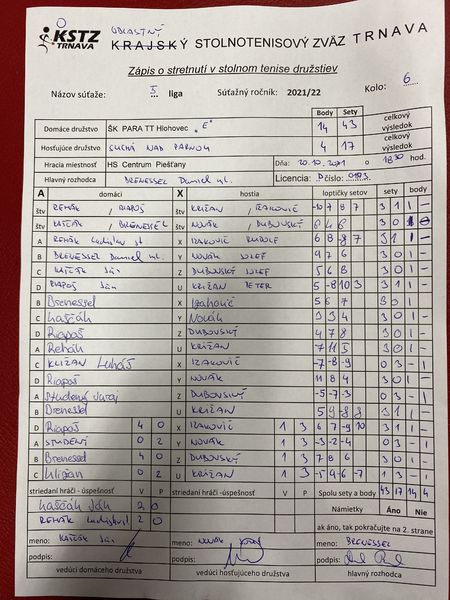 OBLASTNÝ
KSTZ TRNAVA KRAJSKÝ STOLNOTENISOVÝ ZVÄZ TRNAVA
Zápis o stretnutí v stolnom tenise družstiev
Názov súťaže: 5. liga Súťažný ročník: 2021/22 Kolo: 6
Body Sety celkový
Domáce družstvo ŠK PARA TT Hlohovec "E" 14 43 výsledok
Hosťujúce družstvo SUCHÁ NAD PARNOU 4 17 celkový výsledok
Hracia miestnosť HS Centrum Piešťany Dňa: 20.10.2021 o 18:30 hod.
Hlavný rozhodca BRENESSEL Daniel ml. Licencia: D číslo:
A domáci X hostia loptičky setov sety body
štv REHÁK / RIAPOŠ štv KRIŽAN / IZAKOVIČ -10 7 8 7 3 1 1 -
štv KAŠČÁK / BRENESSEL štv NOVÁK / DUBOVSKÝ 6 4 6 3 0 1
A REHÁK Ladislav st X IZAKOVIČ RUDOLF 6 8 -8 7 3 1 1 -
B BRENESSEL Daniel ml. Y NOVÁK JOZEF 9 7 6 3 0 1 -
C KAŠČÁK Ján Z DUBOVSKÝ JOZEF 5 6 8 3 0 1 -
D RIAPOŠ Ján U KRIŽAN PETER 5 -8 10 3 3 1 1 -
B Brenessel X Izakovič 5 6 7 3 0 1
C Kaščák Y Novák 3 3 4 3 0 1 -
D Riapoš Z DUBOVSKÝ 4 7 8 3 0 1 -
A Rehák U KRIŽAN 7 11 5 3 0 1 -
C KLIŽAN Lukáš X IZAKOVIČ -7 -8 -9 0 3 - 1
D Riapoš Y NOVÁK 11 8 4 3 0 1 -
A Studený Juraj Z DUBOVSKÝ -5 -7 -3 0 3 - 1
B Brenessel U KRIŽAN 5 9 -8 8 3 1 1 -
D Riapoš 4 0 X IZAKOVIČ 1 3 6 7 -9 10 3 1 1 -
A STUDENÝ 0 2 Y NOVÁK 1 3 -3 -2 -4 0 3 - 1
B Brenessel 4 0 Z DUBOVSKÝ 1 3 7 8 6 3 0 1 -
C 0 2 U KRIŽAN 1 3 -5 4 -6 -7 1 3 - 1
striedaní hráči - úspešnosť V P striedaní hráči - úspešnosť V P Spolu sety a body 43 17 14 4
Kaščák Ján 2 0 Námietky Áno Nie
REHÁK Ladislav 2 0
ak áno, tak pokračujte na 2. strane
meno: KAŠČÁK Ján meno: NOVÁK Jozef meno: BRENESSEL
podpis: podpis: podpis:
vedúci domáceho družstva vedúci hosťujúceho družstva hlavný rozhodca